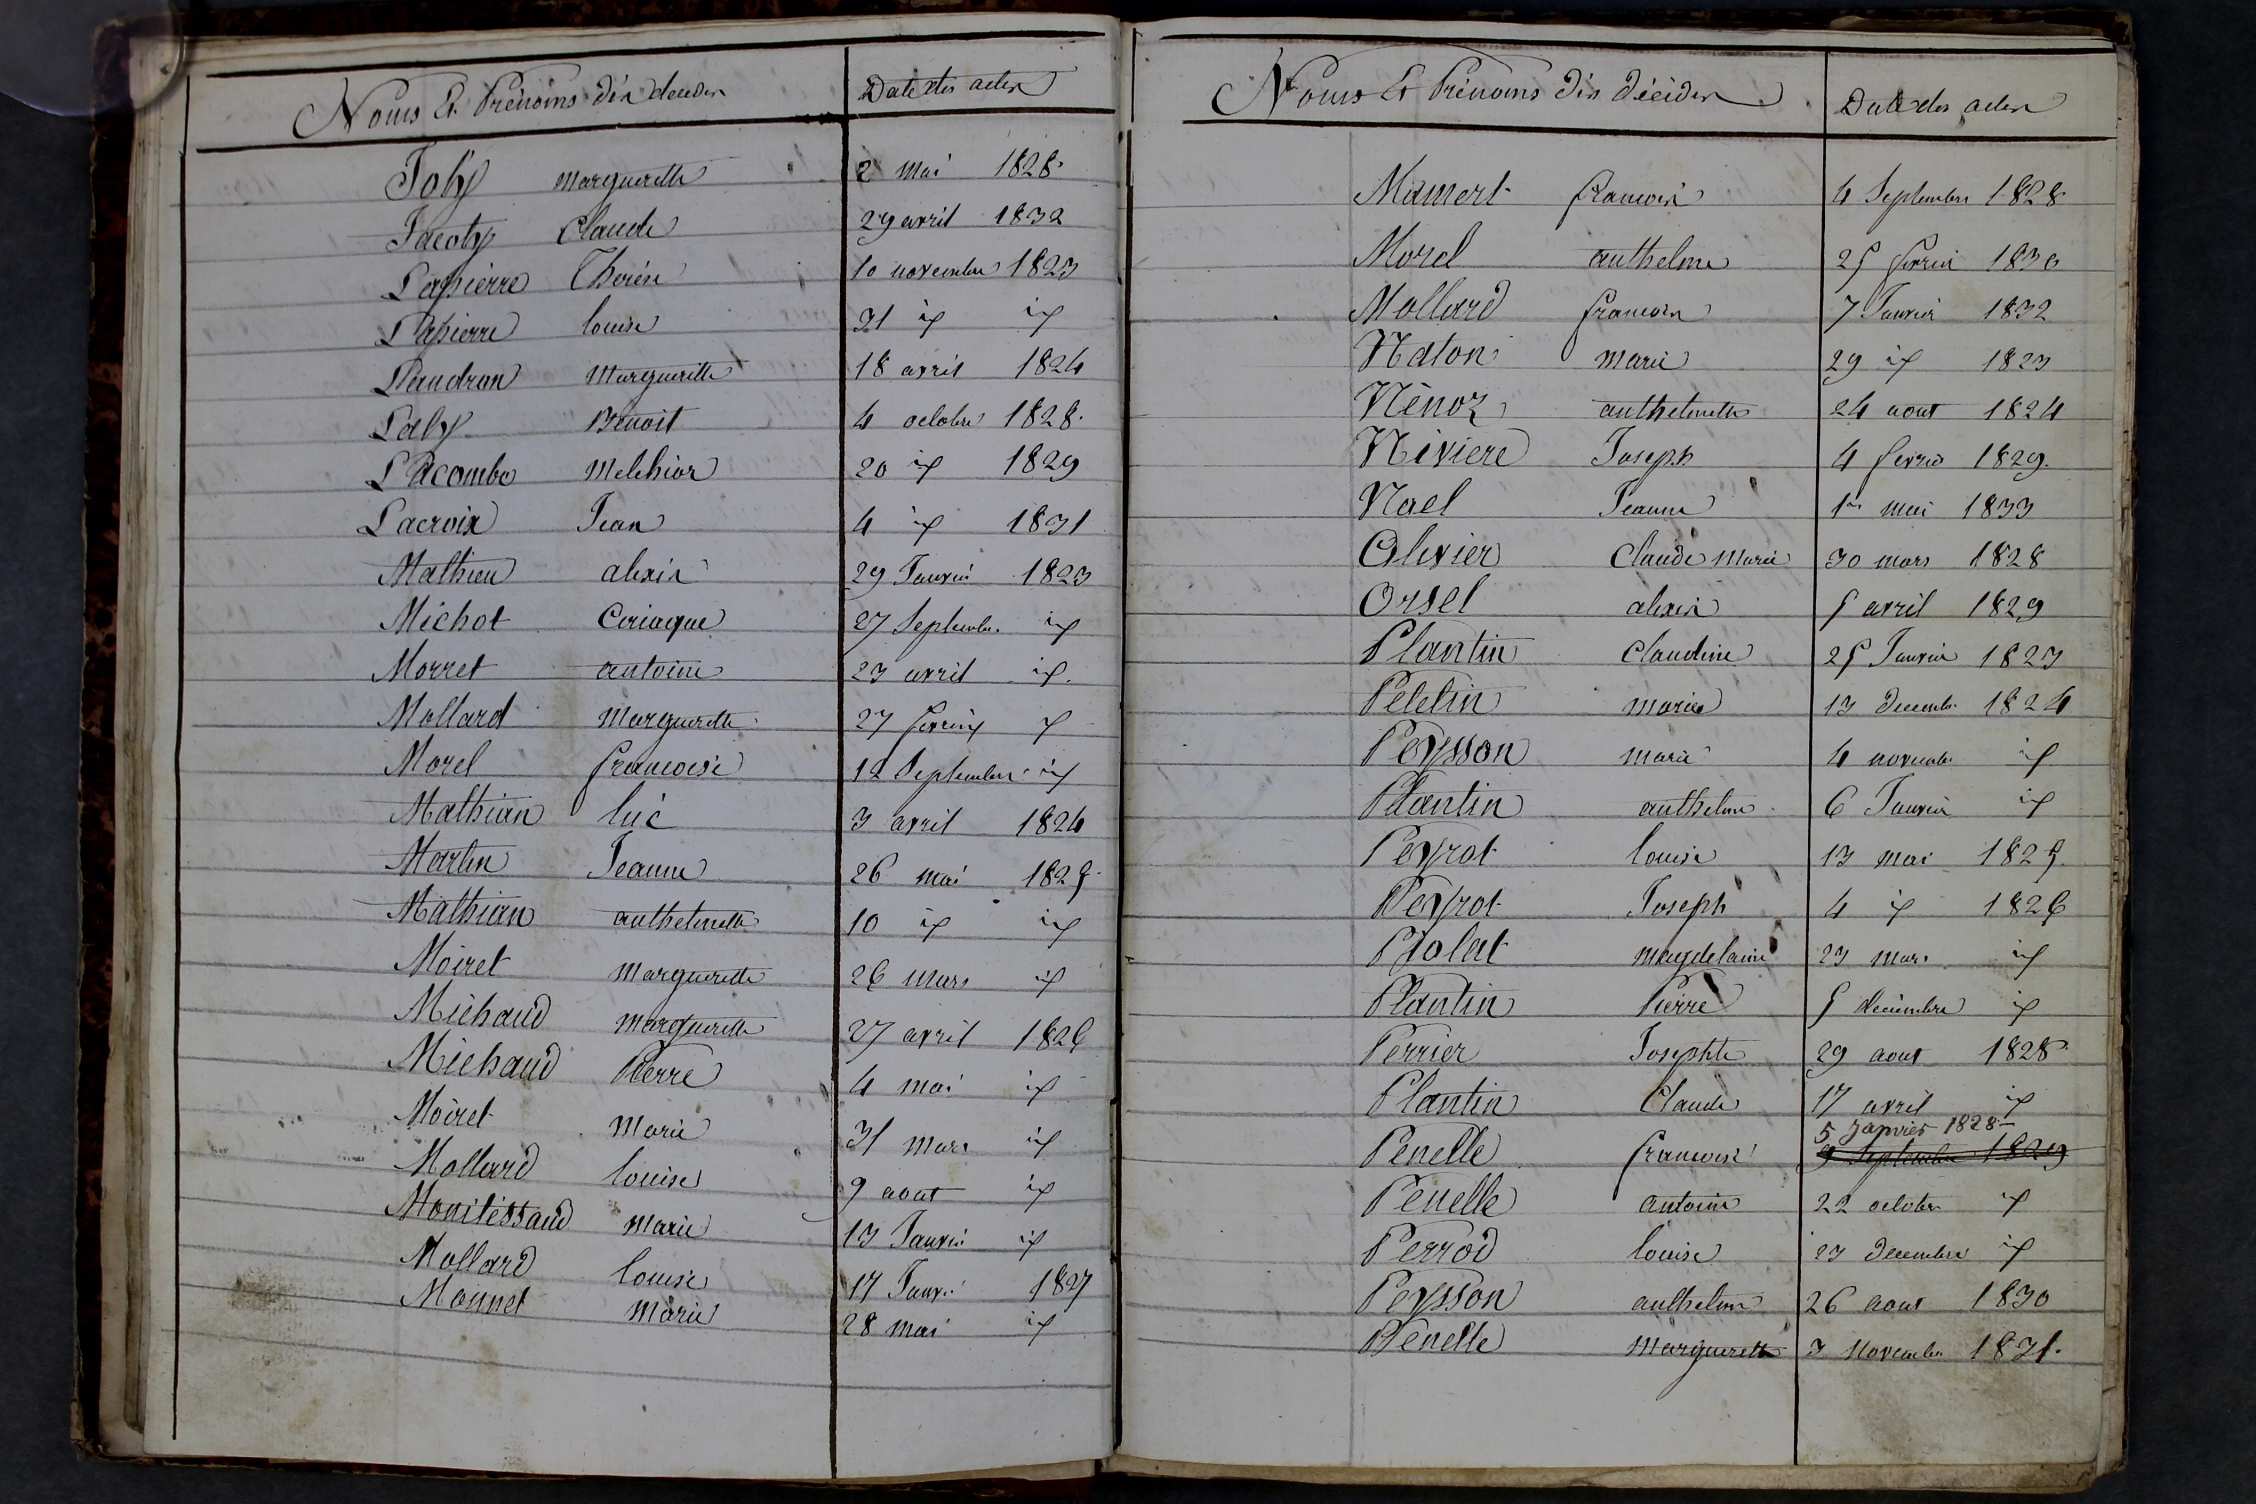 Noms Et Prénoms des décédés Date des actes
Joly marguerette 2 mai 1828.
Jacoby Claude 29 avril 1832
Lapierre Therèse 10 novembre 1823
Lapierre louise 31 id id
Landran Margueritte 18 avril 1824
Laby Benoit 4 octobre 1828.
Lacombe Melchior 20 id 1829
Lacroix Jean 4 id 1831
Mathieu alexis 29 Janvier 1823
Michot Ciriaque 27 Septembre id
Morret antoine 23 avril id.
Mollard Marguerette 27 fevrier id
Morel francoise 12 Septembre id
Mathian luc 3 avril 1824
Martin Jeanne 26 mai 1825.
Mathian anthelmette 10 id id
Moiret Marguerette 26 mars id
Michaud marguerette 27 avril 1826
Michaud Pierre 4 mai id
Moiret Marie 31 mars id
Mollard louise 9 aout id
Monitessaud marie 13 Janvier id
Mollard louise 17 Janvi 1827
Monnet Marie 28 mai id
Noms Et Prénoms des décédés Date des actes
Mamert francois 4 Septembre 1828
Morel anthelme 25 fevrier 1830
Mollard francois 7 Janvier 1832
Naton marie 29 id 1823
Nénoz anthelmette 24 aout 1824
Niviere Joseph 4 fevrier 1829.
Nael Jeanne 1er mai 1833
Olivier Claude Marie 30 mars 1828
Orsel alexis 5 avril 1829
Plantin Claudine 25 Janvier 1823
Peletin marie 13 decembre 1824
Peysson marie 4 novembre id
Plantin anthelme 6 Janvier id
Peyrot louise 13 mai 1825.
Peyrot Joseph 4 id 1826
Piolat magdelaine 23 mars id
Plantin Pierre 5 decembre id
Perrier Josephte 29 aout 1828
Plantin Claude 17 avril id
5 Janvier 1828
Penelle francoise 9 Septembre 1829
Penelle antoine 22 octobre id
Perrod louise 23 decembre id
Peysson anthelme 26 aout 1830
Penelle Marguerette 3 Novembre 1831.